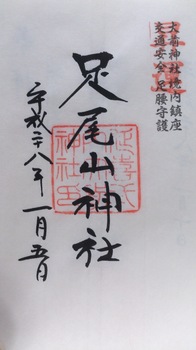 大前神社境内鎮座
交通安全 足腰守護
足尾山神社
平成二十八年一月五日